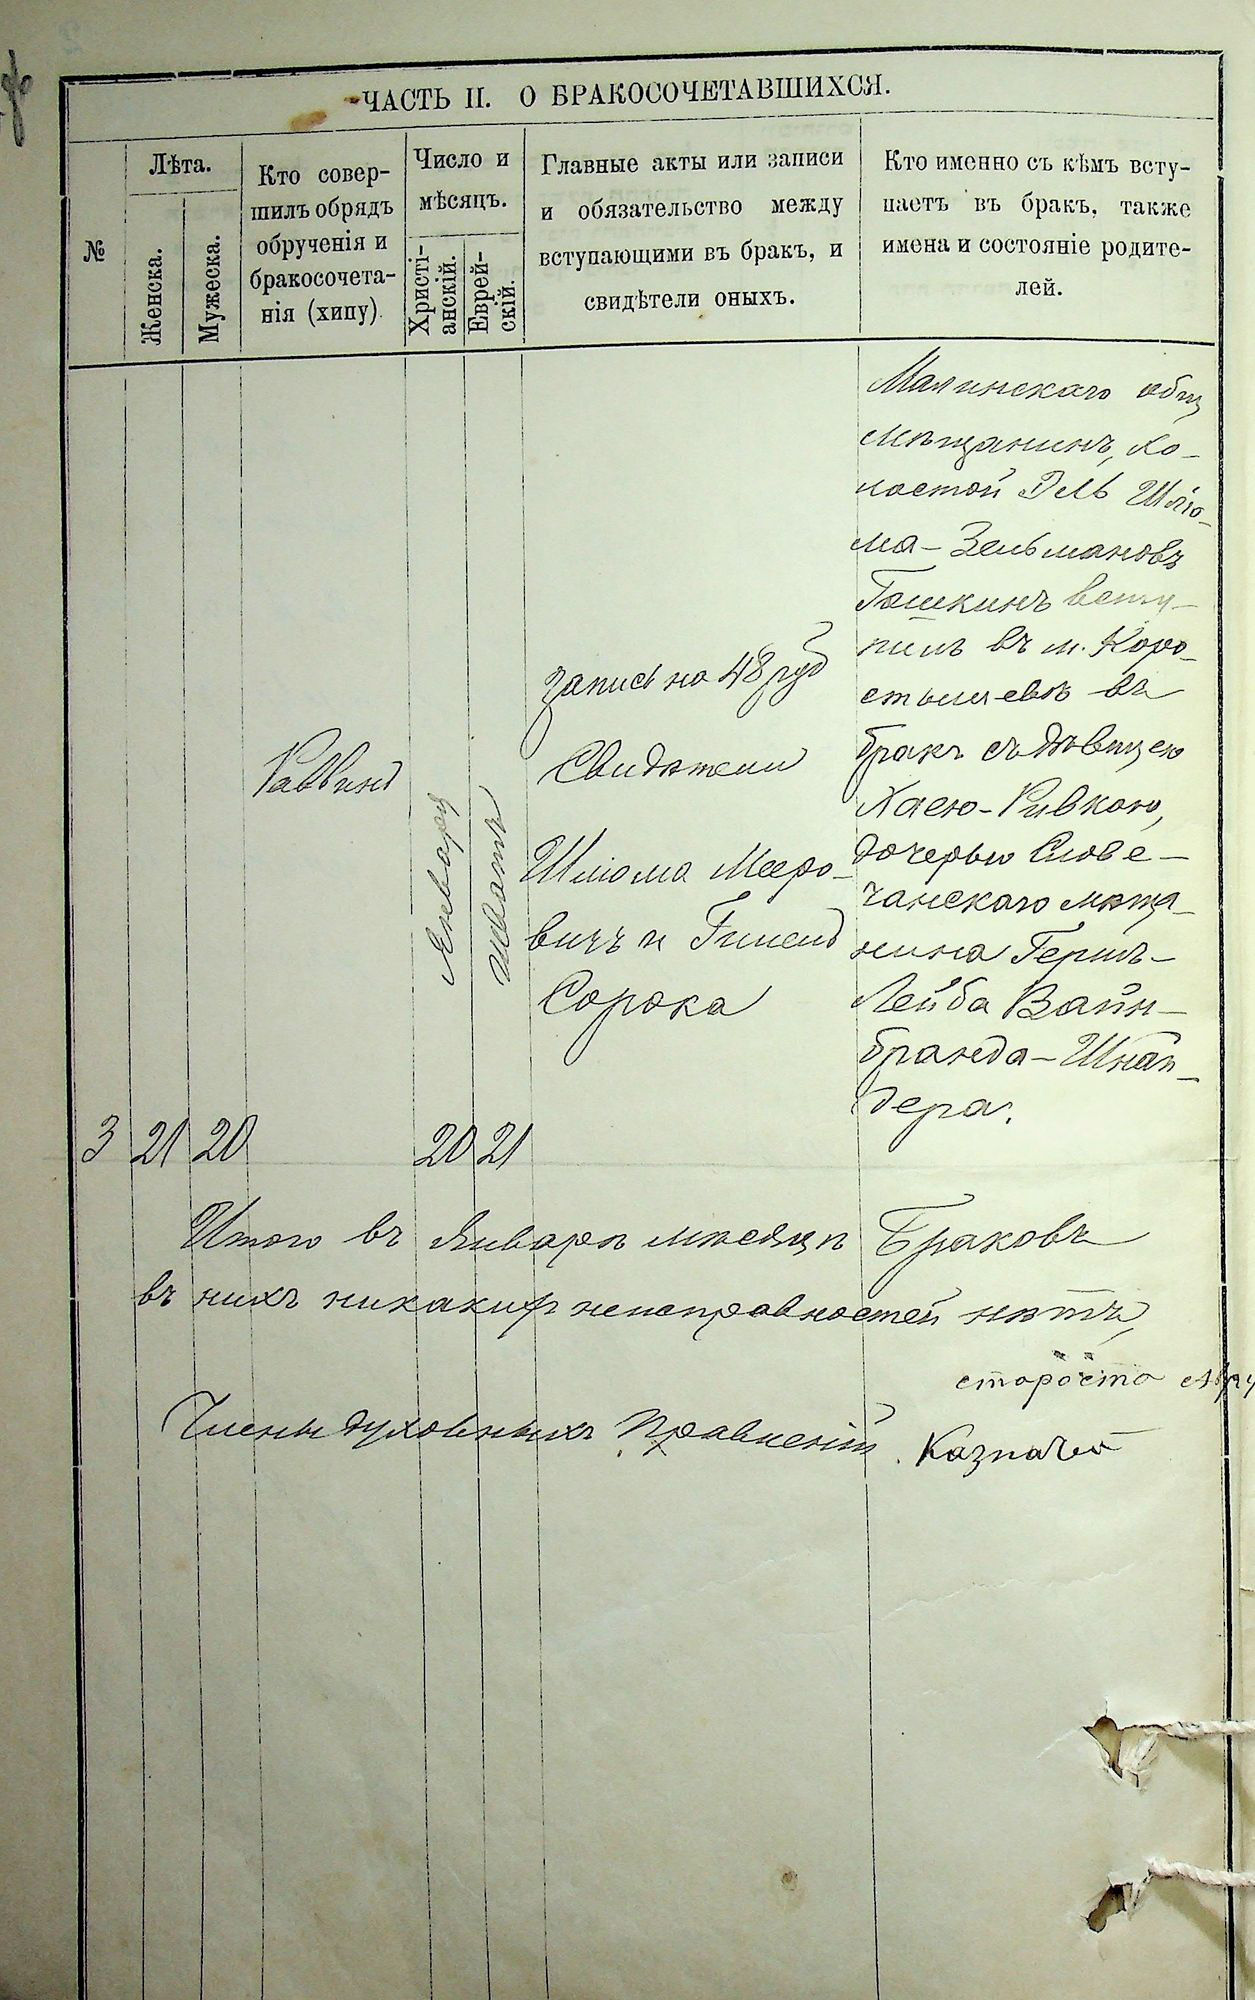 ЧАСТЬ II. О БРАКОСОЧЕТАВШИХСЯ.
№
Лѣта.
Женска.
Мужеска.
Кто совер-
шилъ обрядъ
обрученія и
бракосочета-
нія (хипу)
Число и
мѣсяцъ.
Христі-
анскій.
Еврей-
скій.
Главные акты или записи
и обязательство между
вступающими въ бракъ, и
свидѣтели оныхъ.
Кто именно съ кѣмъ всту-
паетъ въ бракъ, также
имена и состояніе родите-
лей.
3
21
20
Раввинъ
Января
20
Шватъ
21
запись на 48 руб
Свидѣтели
Шлiома Меро-
вичъ и
Сорока
Малинскаго общ
мѣщанинъ, хо-
лостой Эль Шліо-
ма-Зельмановъ
Гошкинъ всту-
пилъ въ м. Коро-
стышевѣ въ
бракъ съ дѣвицею
Хаею-Ривкою,
дочерью Слове-
чанскаго мѣща-
нина Гершъ-
Лейба Вайн-
бранда-Шнай-
дера.
Итого въ Январѣ мѣсяцѣ Браковъ
въ нихъ никакихъ неисправностей нѣтъ,
староста
Члены духовныхъ Правленій Казначей